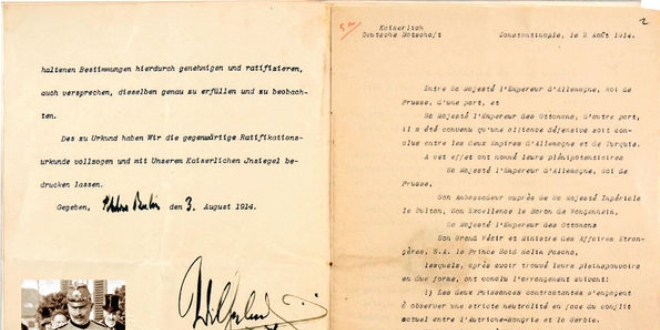 haltenen Bestimmungen hierdurch genehmigen und ratifizieren,
auch versprechen, dieselben genau zu erfüllen und zu beobach-
ten.
Des zu Urkund haben Wir die gegenwärtige Ratifikations-
urkunde vollzogen und mit Unserem Kaiserlichen Insiegel be-
drucken lassen.
Gegeben, Berlin den 3. August 1914.
Wilhelm
2
Kaiserlich
Deutsche Botschaft
Constantinople, le 2 Août 1914.
Entre Sa Majesté l'Empereur d'Allemagne, Roi de
Prusse, d'une part, et
Sa Majesté l'Empereur des Ottomans, d'autre part,
il a été convenu qu'une alliance défensive soit con-
clue entre les deux Empires d'Allemagne et de Turquie.
A cet effet ont nommé leurs plénipotentiaires
Sa Majesté l'Empereur d'Allemagne, Roi de
Prusse,
Son Ambassadeur auprès de Sa Majesté Impériale
le Sultan, Son Excellence le Baron de Wangenheim,
Sa Majesté l'Empereur des Ottomans
Son Grand Vézir et Ministre des Affaires Etran-
gères, S.A. le Prince Saïd Halim Pascha,
lesquels, après avoir trouvé leurs pleinspouvoirs
en due forme, ont convenu l'arrangement suivant:
1) Les deux Puissances contractantes s'engagent
à observer une stricte neutralité en face du conflit
actuel entre l'Autriche-Hongrie et la Serbie.